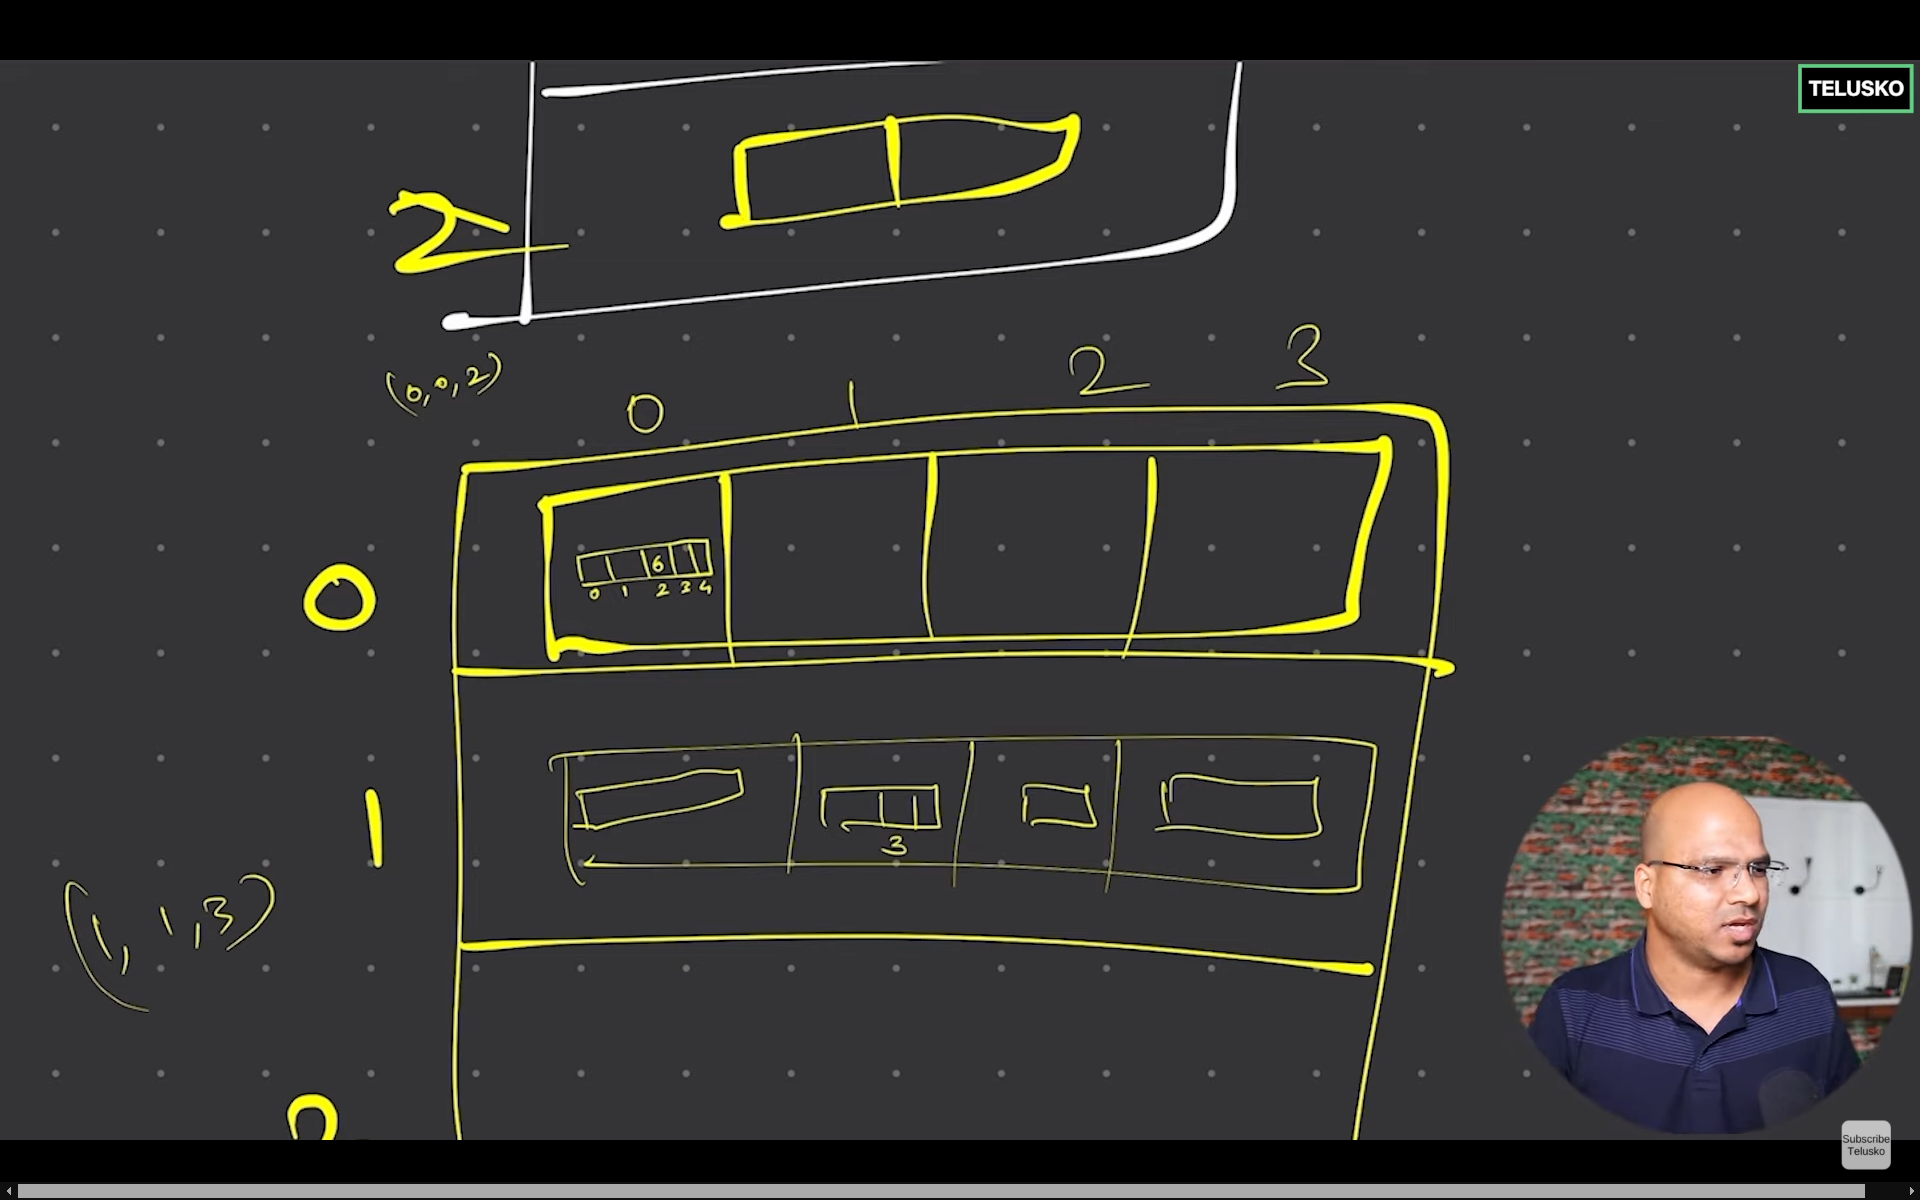 TELUSKO
2
(0,0,2)
0 1 2 3
6
0 1 2 3 4
0
1
3
(1, 1, 3)
2
Subscribe
Telusko